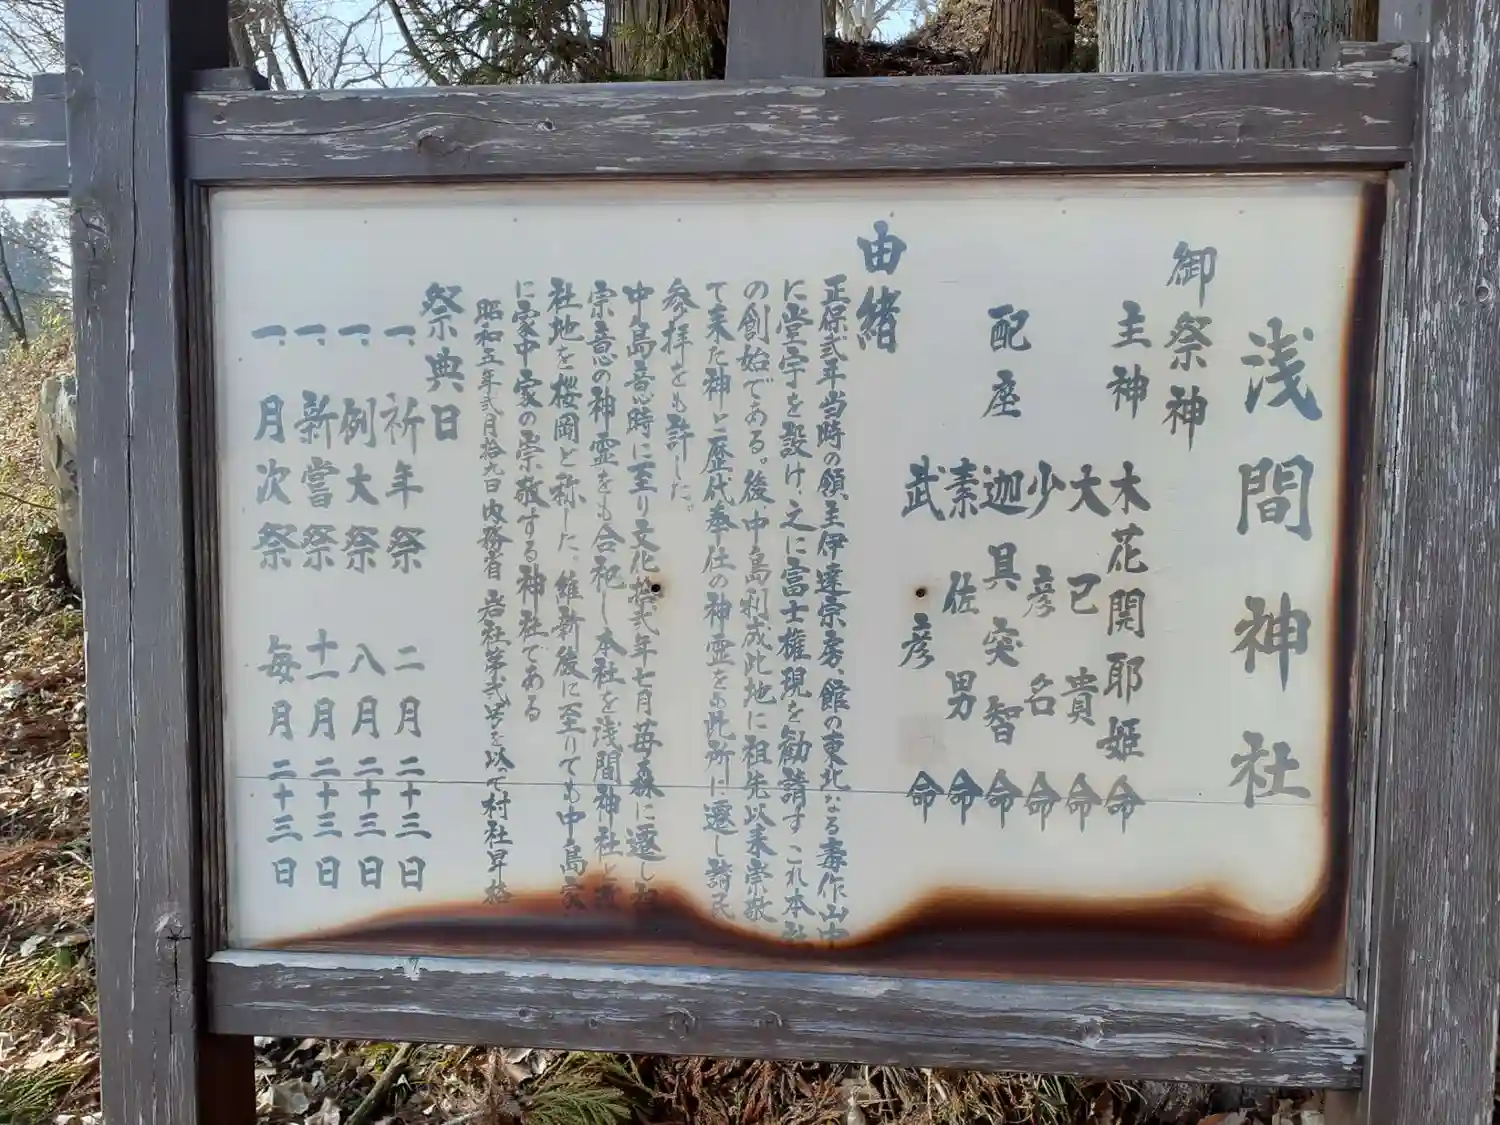 浅間神社
御祭神
主神 木花開耶姫命
大己貴命
少彦名命
配座 迦具突智命
素佐男命
武彦命
由緒
正保弐年当時の領主伊達宗房、館の東北なる毒作山中
に堂宇を設け、之に富士権現を勧請す これ本社
の創始である。後、中島利成此地に祖先以来崇敬
て来た神と歴代奉仕の神霊をも此所に遷し諸民
参拝をも許した。
中島意時に至り文化拾弐年七月苺森に遷し
宗意の神霊をも合祀し本社を浅間神社と
社地を桜岡と称した。維新後に至りても中島家
に家中家の崇敬する神社である
昭和五年弐月拾九日内務省岩社第弐号を以て村社昇格
祭典日
一、祈年祭 二月二十三日
一、例大祭 八月二十三日
一、新嘗祭 十一月二十三日
一、月次祭 毎月二十三日